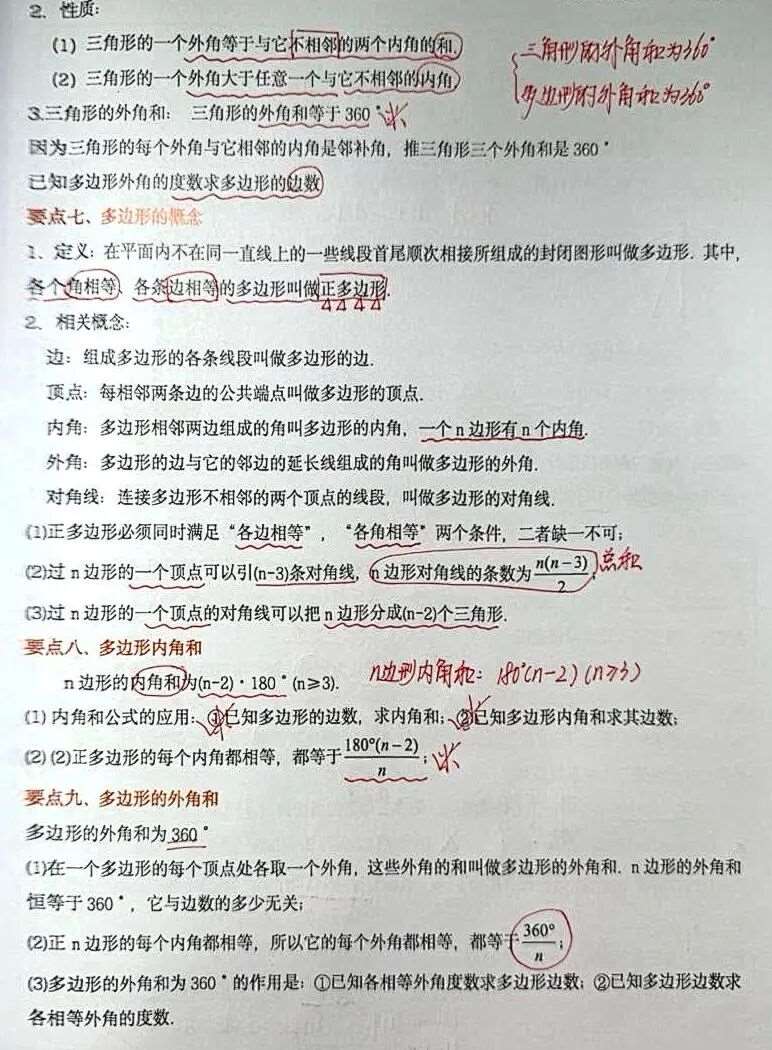 2. 性质:
(1) 三角形的一个外角等于与它不相邻的两个内角的和.
三角形的外角和为360°
(2) 三角形的一个外角大于任意一个与它不相邻的内角.
多边形的外角和为360°
3.三角形的外角和: 三角形的外角和等于 360°
因为三角形的每个外角与它相邻的内角是邻补角，推三角形三个外角和是 360°
已知多边形外角的度数求多边形的边数
要点七、多边形的概念
1、定义: 在平面内不在同一直线上的一些线段首尾顺次相接所组成的封闭图形叫做多边形. 其中,
各个角相等、各条边相等的多边形叫做正多边形.
2、相关概念:
边: 组成多边形的各条线段叫做多边形的边.
顶点: 每相邻两条边的公共端点叫做多边形的顶点.
内角: 多边形相邻两边组成的角叫多边形的内角，一个 n 边形有 n 个内角.
外角: 多边形的边与它的邻边的延长线组成的角叫做多边形的外角.
对角线: 连接多边形不相邻的两个顶点的线段，叫做多边形的对角线.
(1)正多边形必须同时满足“各边相等”，“各角相等”两个条件，二者缺一不可;
(2)过 n 边形的一个顶点可以引(n-3)条对角线，n 边形对角线的条数为 n(n−3)/2; 总和
(3)过 n 边形的一个顶点的对角线可以把 n 边形分成(n-2)个三角形.
要点八、多边形内角和
n 边形的内角和为(n-2)·180°(n≥3). n边形内角和: 180°(n-2) (n≥3)
(1) 内角和公式的应用: ①已知多边形的边数，求内角和; ②已知多边形内角和求其边数;
(2) (2)正多边形的每个内角都相等，都等于 180°(n−2)/n;
要点九、多边形的外角和
多边形的外角和为 360°
(1)在一个多边形的每个顶点处各取一个外角，这些外角的和叫做多边形的外角和. n 边形的外角和
恒等于 360°，它与边数的多少无关;
(2)正 n 边形的每个内角都相等，所以它的每个外角都相等，都等于 360°/n;
(3)多边形的外角和为 360°的作用是: ①已知各相等外角度数求多边形边数; ②已知多边形边数求
各相等外角的度数.